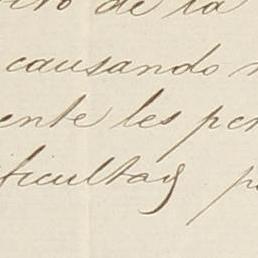 de la
causando
ente les per
ficultad p